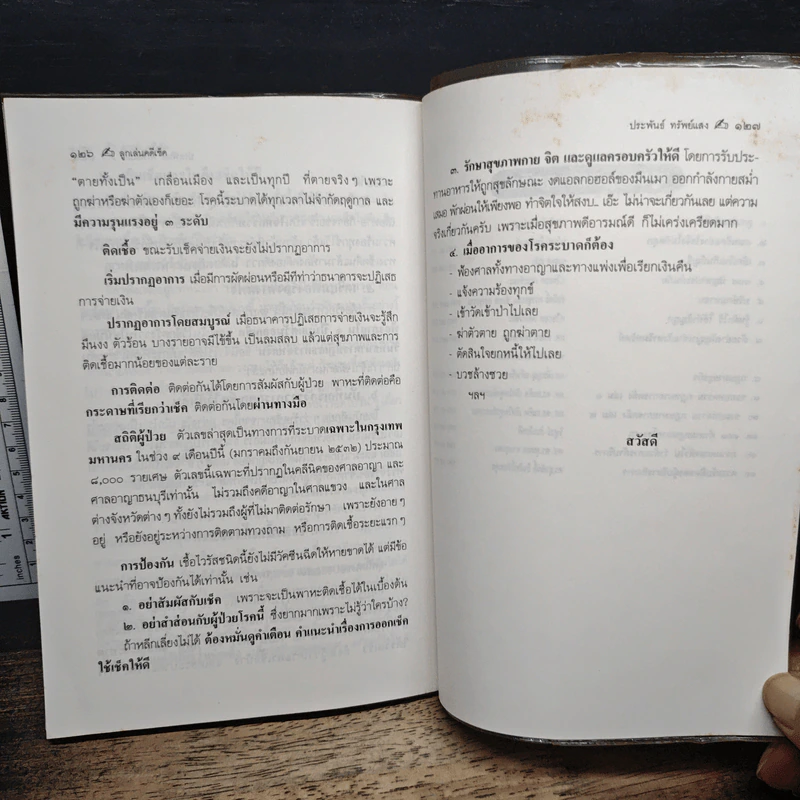 ๑๒๖ ลูกเล่นคดีเช็ค
"ตายทั้งเป็น" เกลื่อนเมือง และเป็นทุกปี ที่ตายจริงๆ เพราะ
ถูกฆ่าหรือฆ่าตัวเองก็เยอะ โรคนี้ระบาดได้ทุกเวลาไม่จำกัดฤดูกาล และ
มีความรุนแรงอยู่ ๓ ระดับ
ติดเชื้อ ขณะรับเช็คจ่ายเงินจะยังไม่ปรากฏอาการ
เริ่มปรากฏอาการ เมื่อมีการผัดผ่อนหรือมีทีท่าว่าธนาคารจะปฏิเสธ
การจ่ายเงิน
ปรากฏอาการโดยสมบูรณ์ เมื่อธนาคารปฏิเสธการจ่ายเงินจะรู้สึก
มึนงง ตัวร้อน บางรายอาจมีไข้ขึ้น เป็นลมสลบ แล้วแต่สุขภาพและการ
ติดเชื้อมากน้อยของแต่ละราย
การติดต่อ ติดต่อกันได้โดยการสัมผัสกับผู้ป่วย พาหะที่ติดต่อคือ
กระดาษที่เรียกว่าเช็ค ติดต่อกันโดยผ่านทางมือ
สถิติผู้ป่วย ตัวเลขล่าสุดเป็นทางการที่ระบาดเฉพาะในกรุงเทพ
มหานคร ในช่วง ๙ เดือนปีนี้ (มกราคมถึงกันยายน ๒๕๓๒) ประมาณ
๘,๐๐๐ รายเศษ ตัวเลขนี้เฉพาะที่ปรากฏในคลีนิคของศาลอาญา และ
ศาลอาญาธนบุรีเท่านั้น ไม่รวมถึงคดีอาญาในศาลแขวง และในศาล
ต่างจังหวัดต่างๆ ทั้งยังไม่รวมถึงผู้ที่ไม่มาติดต่อรักษา เพราะยังอายๆ
อยู่ หรือยังอยู่ระหว่างการติดตามทวงถาม หรือการติดเชื้อระยะแรกๆ
การป้องกัน เชื้อไวรัสชนิดนี้ยังไม่มีวัคซีนฉีดให้หายขาดได้ แต่มีข้อ
แนะนำที่อาจป้องกันได้เท่านั้น เช่น
๑. อย่าสัมผัสกับเช็ค เพราะจะเป็นพาหะติดเชื้อได้ในเบื้องต้น
๒. อย่าสำส่อนกับผู้ป่วยโรคนี้ ซึ่งยากมากเพราะไม่รู้ว่าใครบ้าง?
ถ้าหลีกเลี่ยงไม่ได้ ต้องหมั่นดูคำเตือน คำแนะนำเรื่องการออกเช็ค
ใช้เช็คให้ดี
ประพันธ์ ทรัพย์แสง ๑๒๗
๓. รักษาสุขภาพกาย จิต และดูแลครอบครัวให้ดี โดยการรับประ-
ทานอาหารให้ถูกสุขลักษณะ งดแอลกอฮอล์ของมึนเมา ออกกำลังกายสม่ำ
เสมอ พักผ่อนให้เพียงพอ ทำจิตใจให้สงบ.. เอ๊ะ ไม่น่าจะเกี่ยวกันเลย แต่ความ
จริงเกี่ยวกันครับ เพราะเมื่อสุขภาพดีอารมณ์ดี ก็ไม่เคร่งเครียดมาก
๔. เมื่ออาการของโรคระบาดก็ต้อง
- ฟ้องศาลทั้งทางอาญาและทางแพ่งเพื่อเรียกเงินคืน
- แจ้งความร้องทุกข์
- เข้าวัดเข้าป่าไปเลย
- ฆ่าตัวตาย ถูกฆ่าตาย
- ตัดสินใจยกหนี้ให้ไปเลย
- บวชล้างซวย
ฯลฯ
สวัสดี
inches